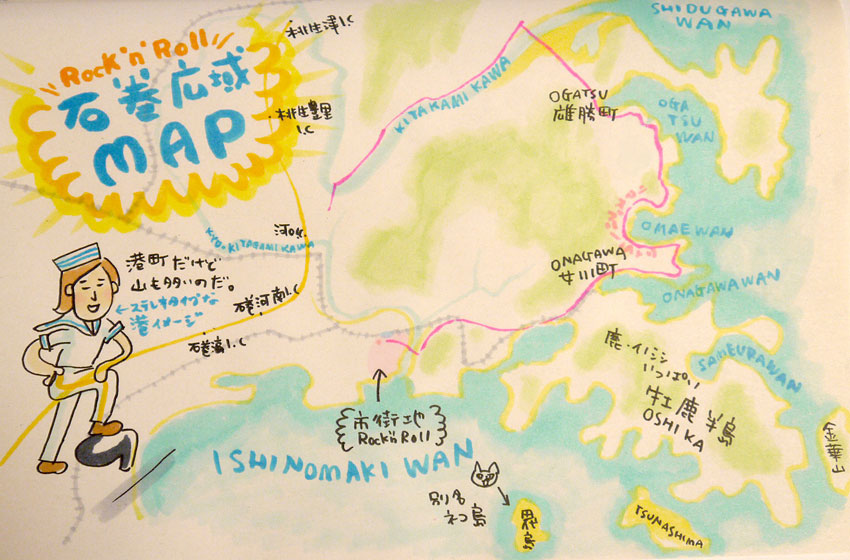 Rock'n'Roll
石巻広域
MAP
桃生津山I.C
桃生豊里
I.C
SHIDUGAWA
WAN
KITAKAMI KAWA
OGATSU
雄勝町
OGA
TSU
WAN
OMAEWAN
ONAGAWA
女川町
ONAGAWAWAN
KYU-KITAGAMIKAWA
石巻河南I.C
港町だけど
山も多いのだ。
←ステレオタイプな
港イメージ
市街地
Rock'n'Roll
鹿・イノシシ
いっぱい
牡鹿半島
OSHIKA
SAMEURAWAN
金華山
ISHINOMAKI WAN
別名
ネコ島
TSUNASHIMA